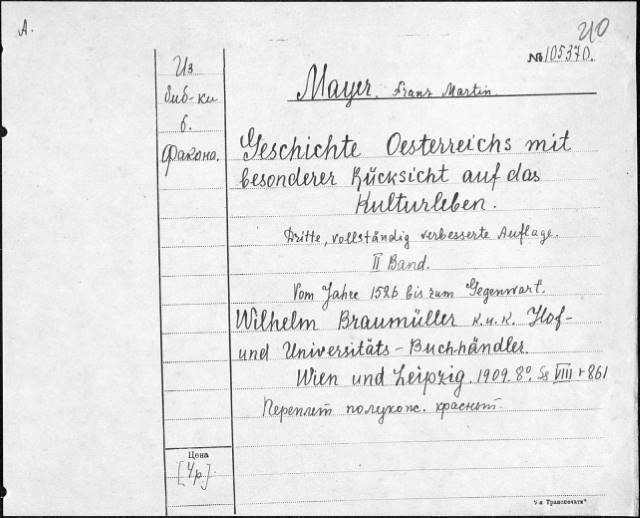 A.
И0
№ 105370.
Из
биб-ки
б.
Факона.
Mayer, Franz Martin.
Geschichte Oesterreichs mit
besonderer Rücksicht auf das
Kulturleben.
Dritte, vollständig verbesserte Auflage.
II Band.
Vom Jahre 1526 bis zum Gegenwart.
Wilhelm Braumüller K. u. K. Hof-
und Universitäts-Buchhändler.
Wien und Leipzig. 1909. 8º. Ss VIII + 861
Переплет полукож. красный.
Цена
[4 р].
5-я Транспечати"